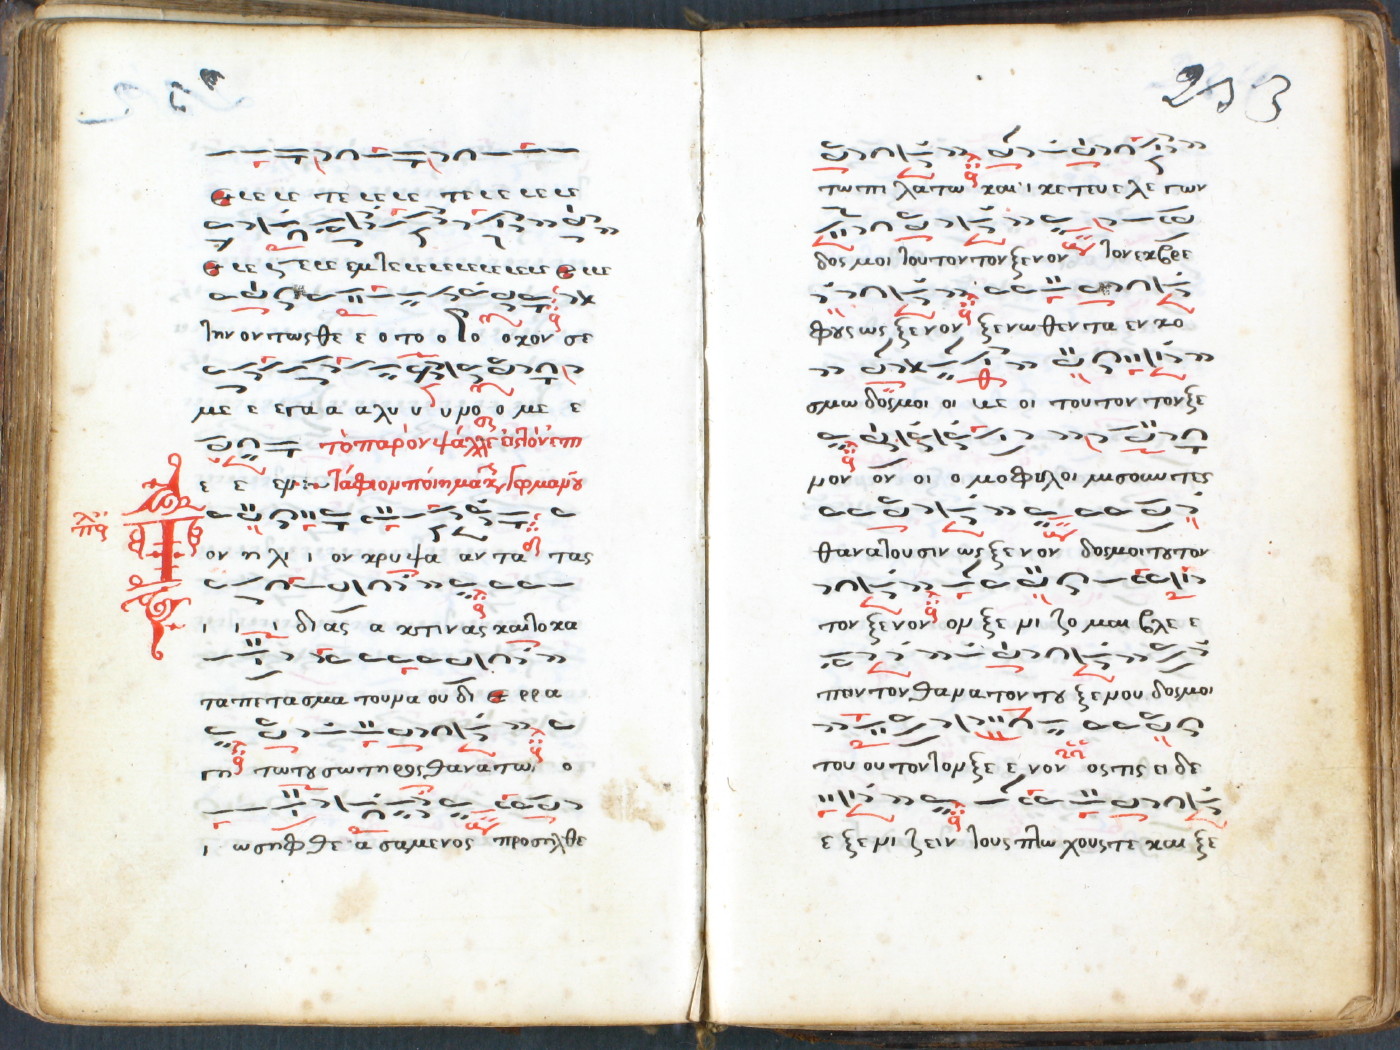 ε ιε ιε τε ιε ιε τε ιε ιε ιε
την οντως θε ε ο το ο το ο κον σε
με ε ε γα α α λυ υ υ μο ο με ε
τὸ παρὸν ψάλλεται εἰς τὸν ἐπι
ε ε εμ τάφιον ποίημα κυ Γερμανοῦ
λχ πα
Τον η λι ι ον κρυ ψα αν τα τας
ι ι ι δι ας α κτινας και το κα
τα πε τα σμα του να ου δι ε ρρα
γη τω του σωτηρος θανατω ο
ι ω σηφ θε α σαμενος προσηλθε
253
τω πι λατω και ι κε τευ ε λε γων
δος μοι τουτον τον ξενον τον εκ βρε
φους ως ξενον ξενωθεντα εν κο
σμω δος μοι οι με οι τουτον τον ξε
νον ον οι ο μο φυλοι μισουντες
θανατουσιν ως ξενον δος μοι τουτον
τον ξενον ον ξε νι ζο μαι βλε ε
πειν τον θανατον του ξενου δος μοι
του ου τον τον ξε ε νον οστις ει δε
ε ξε νι ζειν τους πτω χους τε και ξε